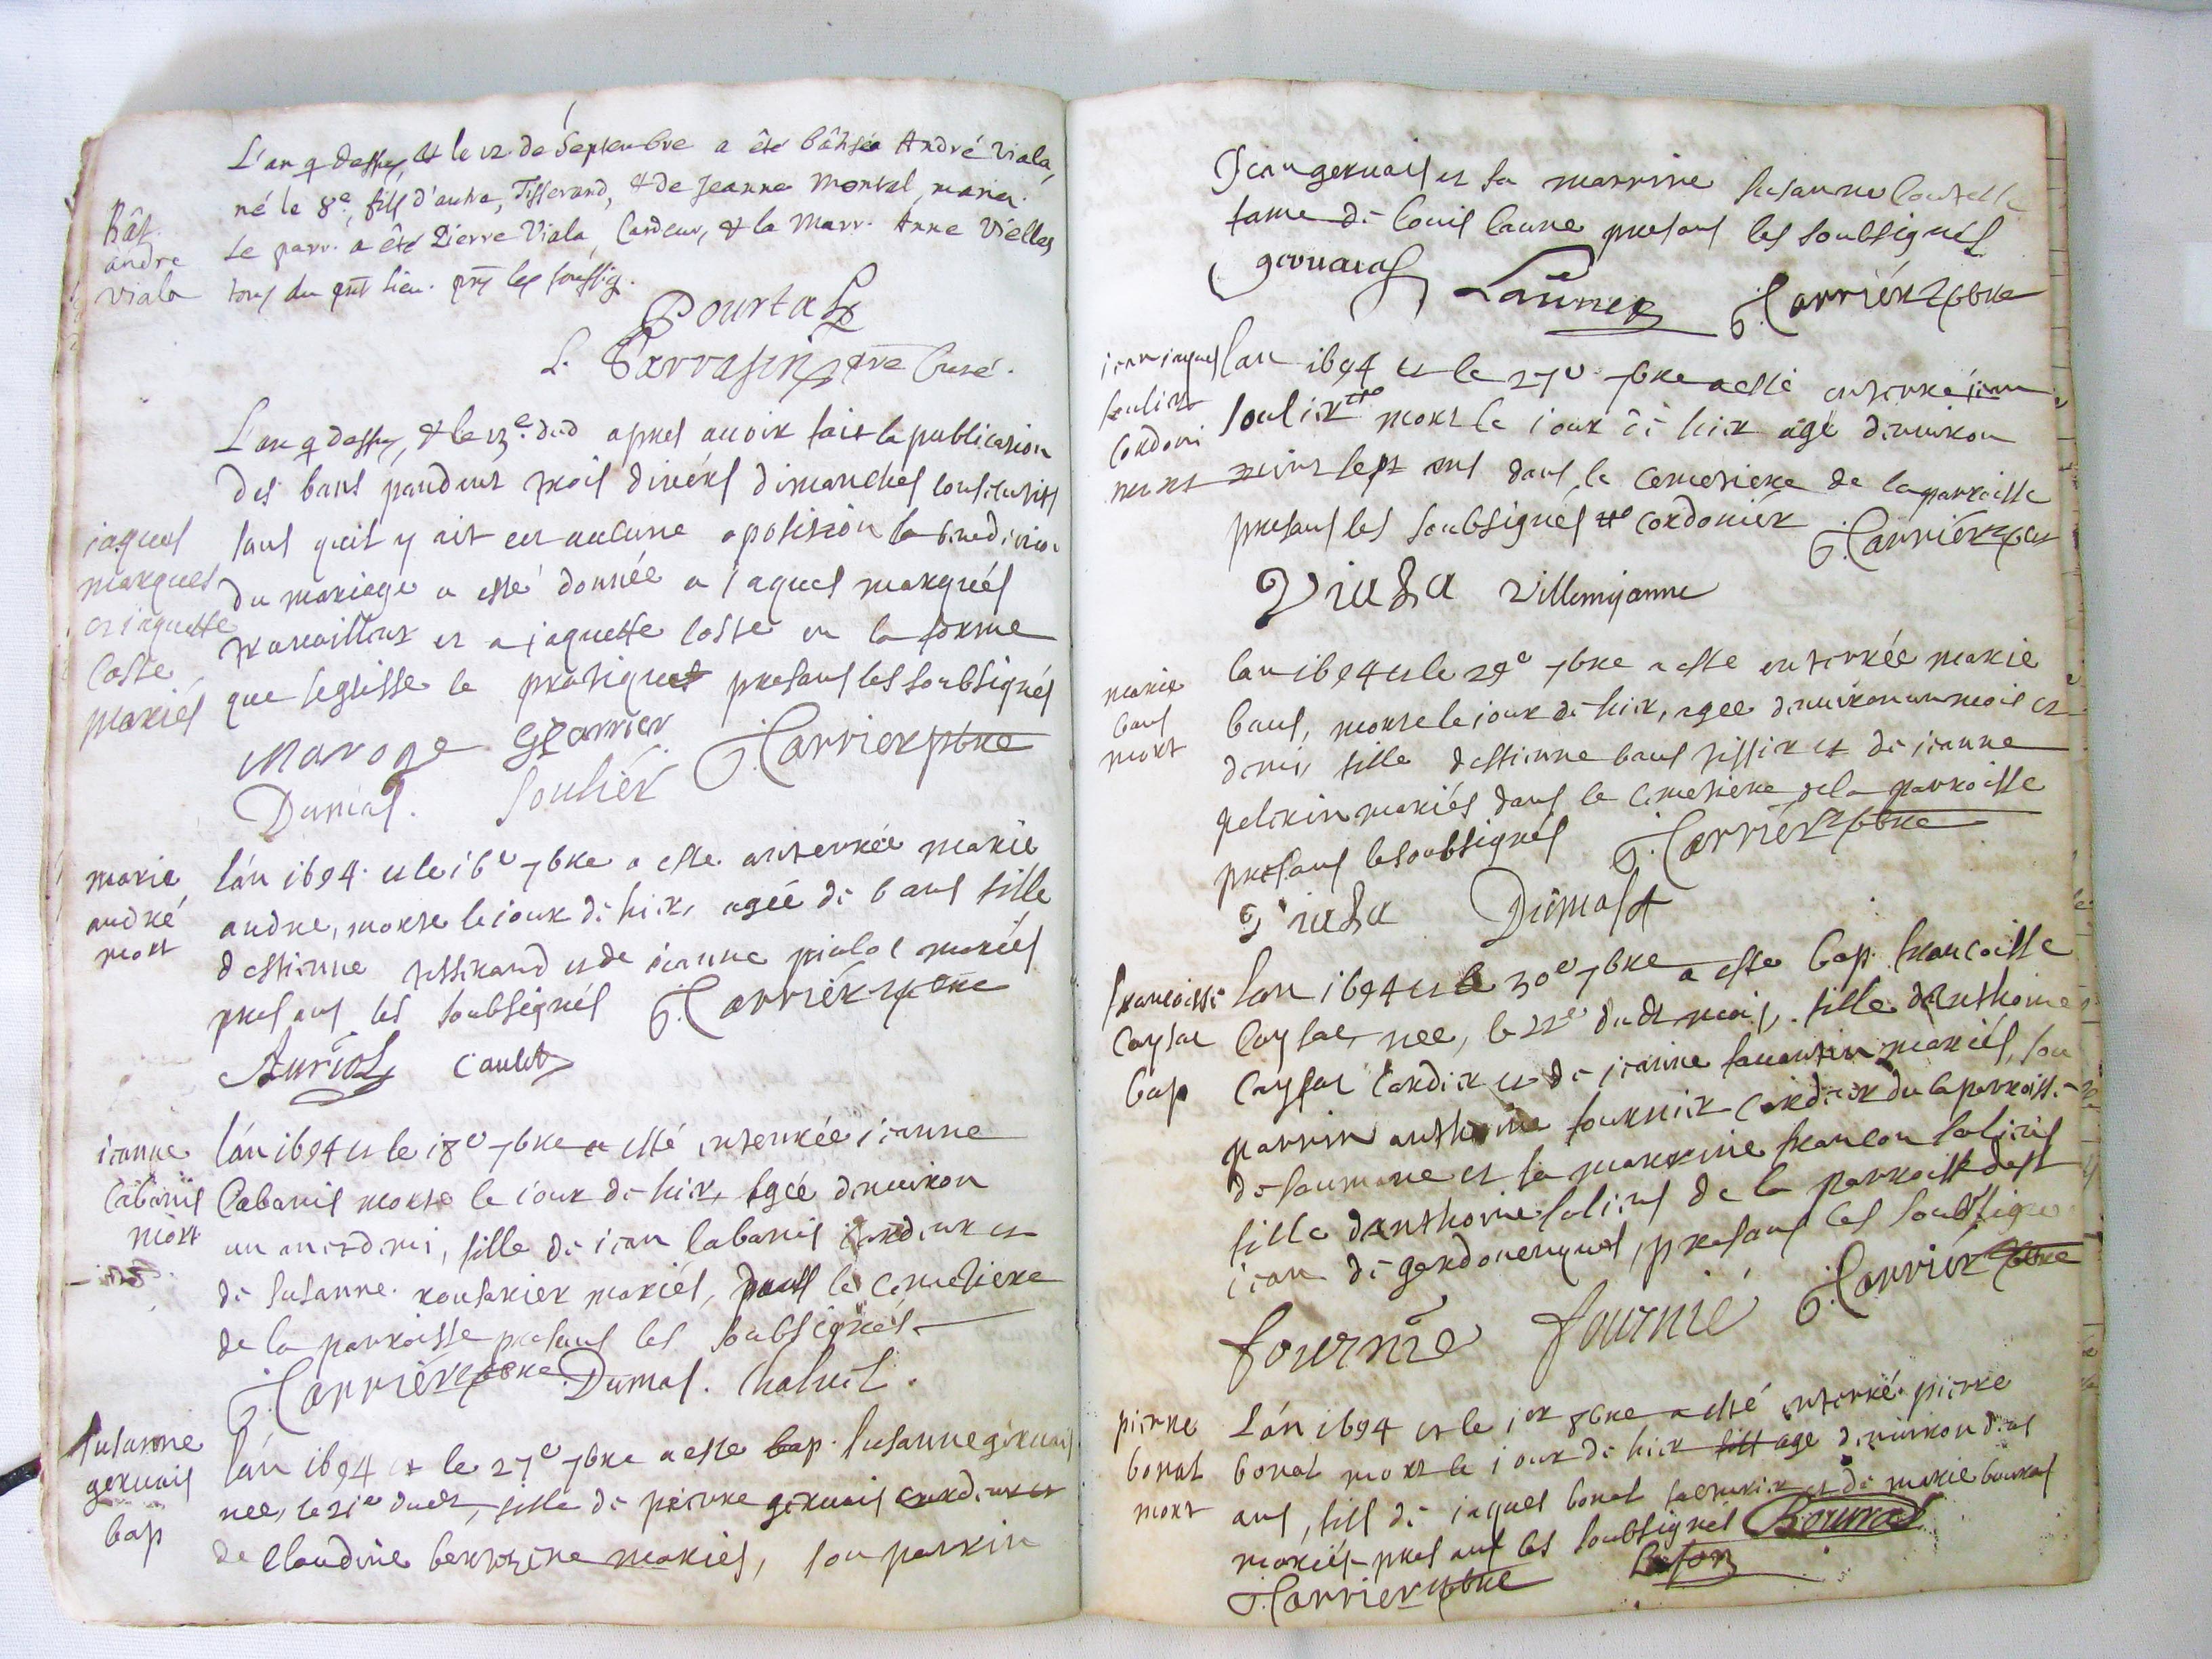 Bât.
andre
viala
L'an q dessus, & le 12 de Septembre a êté bâtisée André viala,
né le 8e, fils d'autre, Tisserand, & de Jeanne montel, marier.
Le parr. a êté Pierre Viala, Cardeur, & la Marr. Anne Vielles
tous du pnt lieu. pns les soussig.
Pourtal
L. Sarrasin, ptre Curé.
jaques
marques
et jaquette
Costte
mariés
L'an q dessus, & le 13e dud apres auoir fait la publication
des bans pandent trois diuers dimanches consecutifs
sans quil y ait eu aucune oposision la benediction
du mariage a esté donnée a Jaques marqués
trauailleur et a jaquette costte en la forme
que leglisse le pratique presans les soubsignés
Maroge Gearrier J. Carrier pbre
Dumas. Soulier
marie
andré
mort
l'an 1694 et le 16e 7bre a este anterrée marie
andre, morte le iour de hier, agée de 6 ans fille
destienne tisserand et de jeanne mariés
presans les soubsignés J. Carrier pbre
Auriol Caulet
jeanne
Cabanis
mort
l'an 1694 et le 18e 7bre a esté enterrée jeanne
Cabanis morte le iour de hier, agée denuiron
un an et demi, fille de jean Cabanis cardeur et
de susanne rousarier mariés, dans le cemetiere
de la parroisse presans les soubsignés
J. Carrier pbre Dumas.
susanne
geruais
bap
l'an 1694 et le 27e 7bre a este bap. susanne geruais
nee, le 21e dudt, fille de pierre geruais cardeur et
de Claudine mariés, son parrin
Jean geruais et sa marrine susanne
fame de louis laune presans les soubsignés
geruais Launes J. Carrier pbre
jean jaques
soulier
Cordoni
mort
lan 1694 et le 27e 7bre a esté enterré jean
soulier mort le iour de hier agé denuiron
vint sept ans dans le cemetiere de la parroisse
presans les soubsignés cordonier J. Carrier pbre
Viala Villemejanne
marie
baus
mort
lan 1694 et le 29e 7bre a este enterrée marie
baus, morte le iour de hier, agee denuiron un mois et
demi, fille destienne baus tissier et de jeanne
pelerin mariés dans le cemetiere de la parroisse
presans les soubsignés J. Carrier pbre
Viala Dumas
francoisse
Caysac
bap
lan 1694 et le 30e 7bre a este bap francoisse
Caysac nee, le 22e dudt mois, fille danthoine
Caysac Cardier et de jeanne mariés, son
parrin anthoine fournier cardier de la parroisse
de saumane et sa marrine francon
fille danthoine de la parroisse de st
jean de gardonenques, presans les soubsignes
fournié fournié J. Carrier pbre
pierre
bonal
mort
L'an 1694 et le jer 8bre a esté enterré pierre
bonal mort le jour de hier agé denuiron
ans, fils de jaques bonal et de marie bourras
mariés presans les soubsignés Bourras
J. Carrier pbre